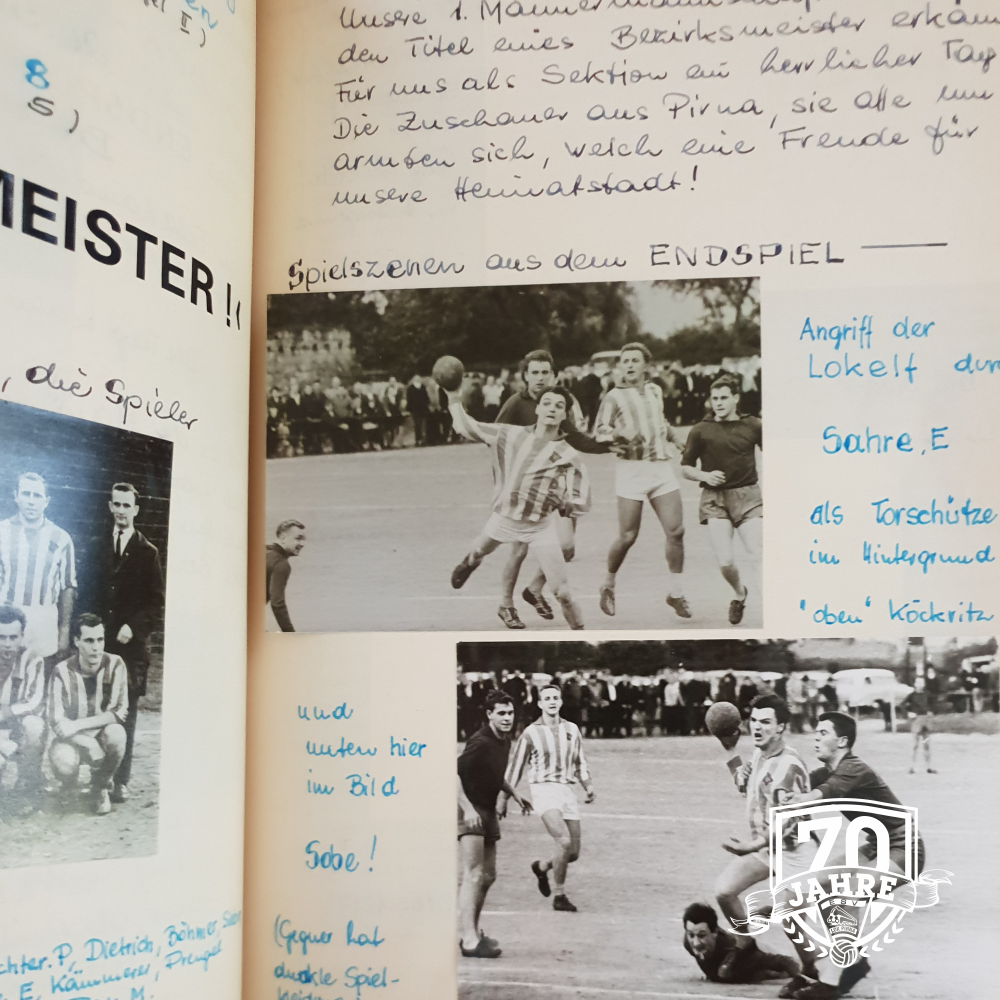 II)
8
5)
MEISTER!!
, die Spieler
P, Dietrich, Böhmer,
E. Kämmerer, Prengel
M.
Unsere 1. Männermannschaft
den Titel eines Bezirksmeister erkäm
Für uns als Sektion ein herrlicher Tag
Die Zuschauer aus Pirna, sie alle um
armten sich, welch eine Freude für
unsere Heimatstadt!
Spielszenen aus dem ENDSPIEL
Angriff der
Lokelf dur
Sahre, E
als Torschütze
im Hintergrund
"oben" Köckritz
und
unten hier
im Bild
Sobe!
(Gegner hat
dunkle Spiel-
70
JAHRE
ESV
LOK PIRNA